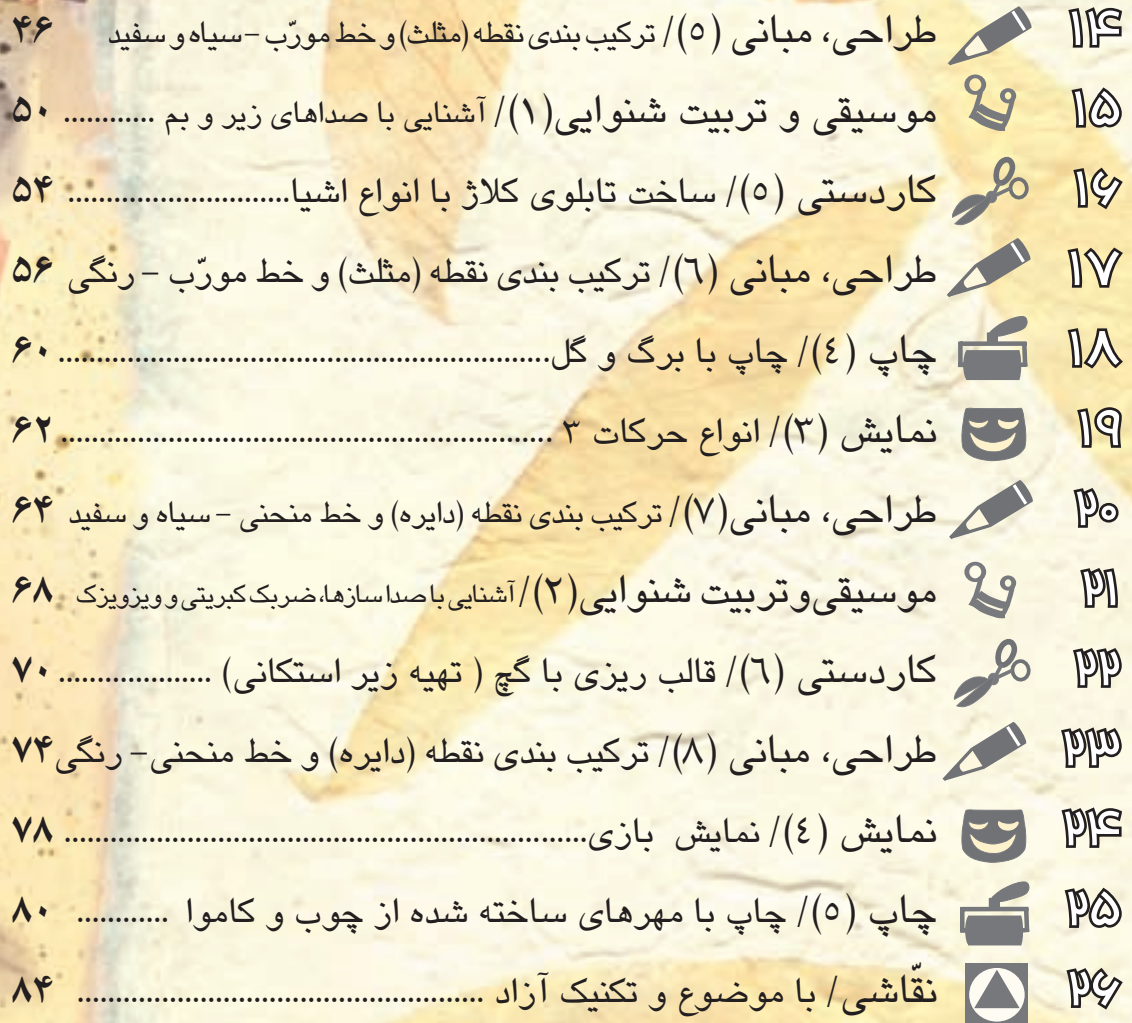 ۱۴ طراحی، مبانی (٥)/ ترکیب بندی نقطه (مثلث) و خط مورّب – سیاه و سفید ۴۶
۱۵ موسیقی و تربیت شنوایی(۱)/ آشنایی با صداهای زیر و بم ............ ۵۰
۱۶ کاردستی (٥)/ ساخت تابلوی کلاژ با انواع اشیا............................. ۵۴
۱۷ طراحی، مبانی (٦)/ ترکیب بندی نقطه (مثلث) و خط مورّب – رنگی ۵۶
۱۸ چاپ (٤)/ چاپ با برگ و گل................................................................ ۶۰
۱۹ نمایش (۳)/ انواع حرکات ۳ ................................................................ ۶۲
۲۰ طراحی، مبانی(۷)/ ترکیب بندی نقطه (دایره) و خط منحنی – سیاه و سفید ۶۴
۲۱ موسیقی‌وتربیت شنوایی(۲)/ آشنایی با صدا سازها، ضربک کبریتی و ویزویزک ۶۸
۲۲ کاردستی (٦)/ قالب ریزی با گچ ( تهیه زیر استکانی) .................... ۷۰
۲۳ طراحی، مبانی (۸)/ ترکیب بندی نقطه (دایره) و خط منحنی– رنگی ۷۴
۲۴ نمایش (٤)/ نمایش بازی.................................................................... ۷۸
۲۵ چاپ (٥)/ چاپ با مهرهای ساخته شده از چوب و کاموا ............ ۸۰
۲۶ نقّاشی/ با موضوع و تکنیک آزاد ..................................................... ۸۴